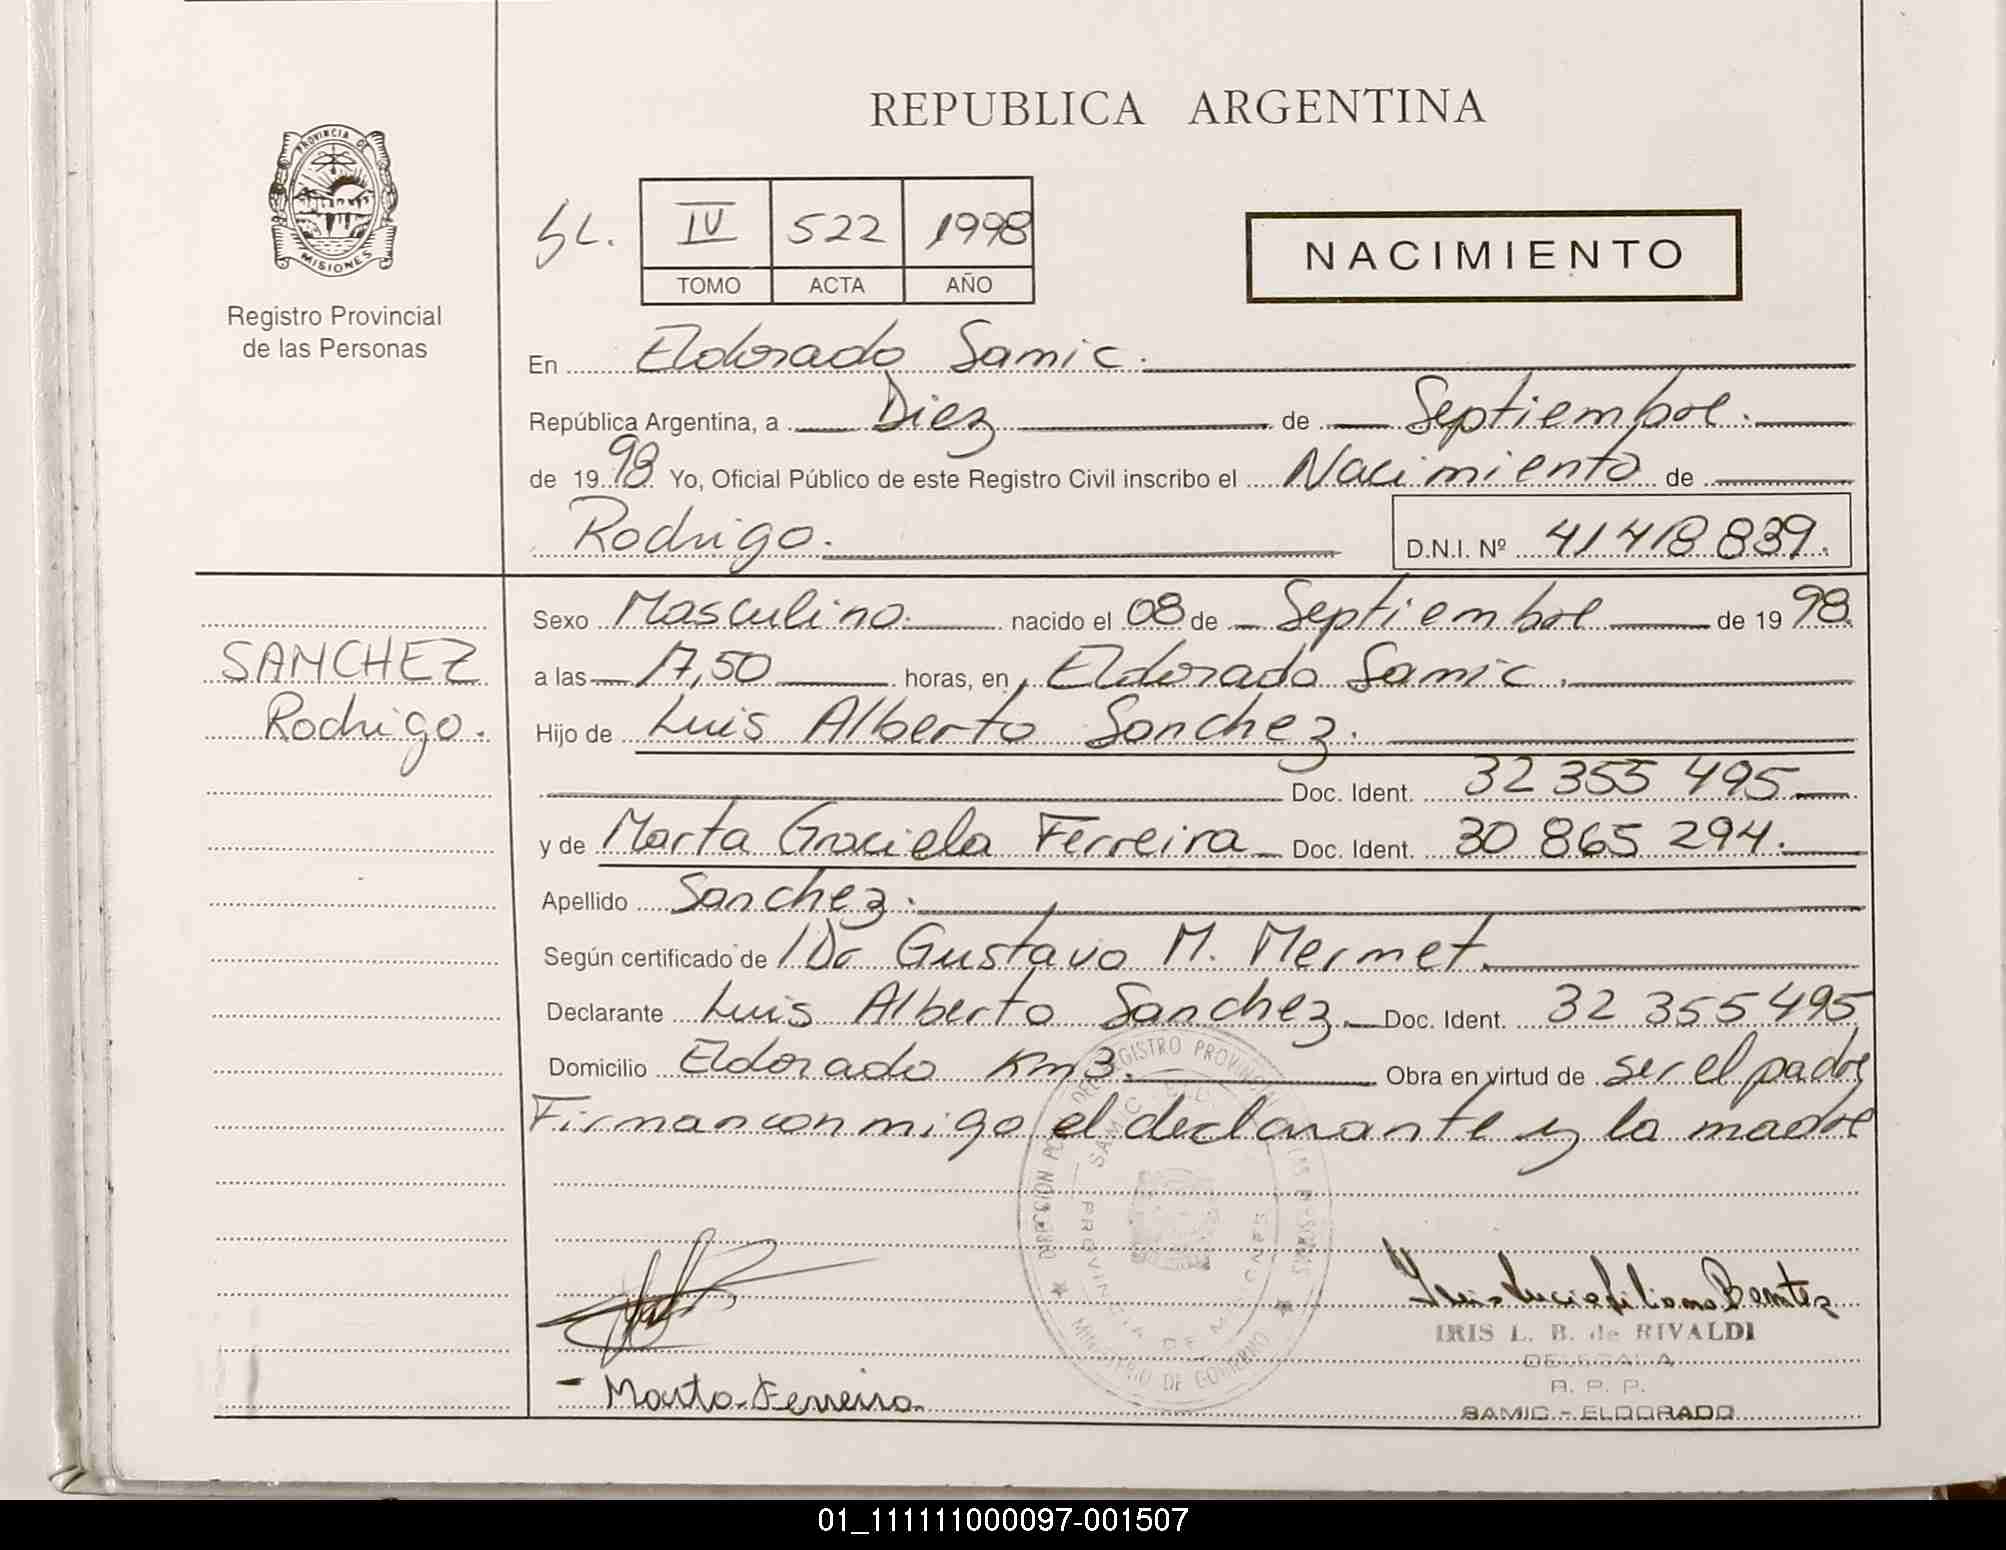 REPUBLICA ARGENTINA
PROVINCIA DE
MISIONES
Registro Provincial
de las Personas
SL.
IV 522 1998
TOMO ACTA AÑO
NACIMIENTO
En Eldorado Samic.
República Argentina, a Diez de Septiembre.
de 1998 Yo, Oficial Público de este Registro Civil inscribo el Nacimiento de
Rodrigo. D.N.I. Nº 41418839.
SANCHEZ
Rodrigo.
Sexo Masculino. nacido el 08 de Septiembre de 1998.
a las 17,50 horas, en Eldorado Samic.
Hijo de Luis Alberto Sanchez.
Doc. Ident. 32 355 495
y de Marta Graciela Ferreira Doc. Ident. 30 865 294.
Apellido Sanchez.
Según certificado de Dr Gustavo M. Mermet.
Declarante Luis Alberto Sanchez. Doc. Ident. 32 355 495
Domicilio Eldorado Km 3. Obra en virtud de ser el padre
Firman conmigo el declarante y la madre
MINISTERIO DE GOBIERNO
PROVINCIA DE
Marta Ferreira
IRIS L. B. de RIVALDI
DELEGADA
R. P. P.
SAMIC - ELDORADO
01_111111000097-001507